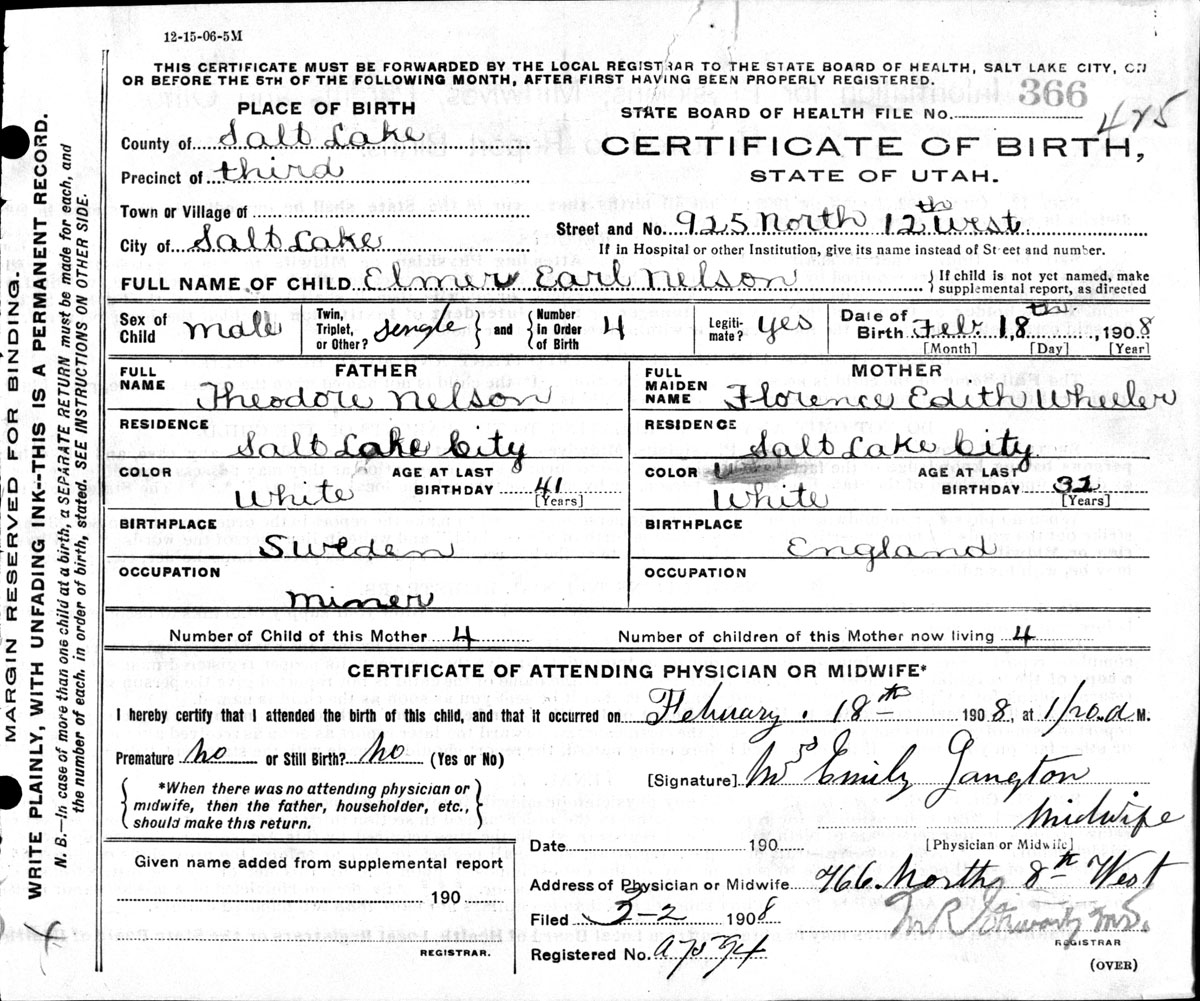 12-15-06-5M
THIS CERTIFICATE MUST BE FORWARDED BY THE LOCAL REGISTRAR TO THE STATE BOARD OF HEALTH, SALT LAKE CITY, ON
OR BEFORE THE 5TH OF THE FOLLOWING MONTH, AFTER FIRST HAVING BEEN PROPERLY REGISTERED.
366
STATE BOARD OF HEALTH FILE No.
475
CERTIFICATE OF BIRTH,
STATE OF UTAH.
PLACE OF BIRTH
County of Salt Lake
Precinct of third
Town or Village of
City of Salt Lake
Street and No. 925 North 12th West
If in Hospital or other Institution, give its name instead of Street and number.
FULL NAME OF CHILD Elmer Earl Nelson
{If child is not yet named, make
supplemental report, as directed
Sex of Child male Twin, Triplet, or Other? sengle and Number in Order of Birth 4 Legiti-mate? yes Date of Birth Feb. 18th, 1908
[Month] [Day] [Year]
FATHER
FULL NAME Theodore Nelson
RESIDENCE
Salt Lake City
COLOR White AGE AT LAST BIRTHDAY 41 [Years]
BIRTHPLACE
Sweden
OCCUPATION
miner
MOTHER
FULL MAIDEN NAME Florence Edith Wheeler
RESIDENCE
Salt Lake City
COLOR White AGE AT LAST BIRTHDAY 32 [Years]
BIRTHPLACE
England
OCCUPATION
Number of Child of this Mother 4 Number of children of this Mother now living 4
CERTIFICATE OF ATTENDING PHYSICIAN OR MIDWIFE*
I hereby certify that I attended the birth of this child, and that it occurred on February. 18th 1908, at 1/20.a M.
Premature no or Still Birth? no (Yes or No)
[Signature] Mrs Emily Langton
Midwife
[Physician or Midwife]
*When there was no attending physician or
midwife, then the father, householder, etc.,
should make this return.
Given name added from supplemental report
190
REGISTRAR.
Date 190
Address of Physician or Midwife 766 North 8th West
Filed 3-2 1908
REGISTRAR
Registered No.
(OVER)
MARGIN RESERVED FOR BINDING.
WRITE PLAINLY, WITH UNFADING INK--THIS IS A PERMANENT RECORD.
N. B.—In case of more than one child at a birth, a SEPARATE RETURN must be made for each, and
the number of each, in order of birth, stated. SEE INSTRUCTIONS ON OTHER SIDE.